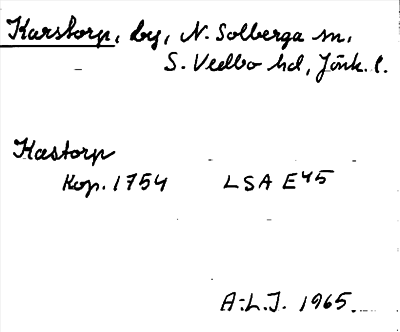 Karstorp, by, N. Solberga sn,
S. Vedbo hd, Jönk. l.
Kastorp
Kop. 1754 LSA E45
A.L.J. 1965.